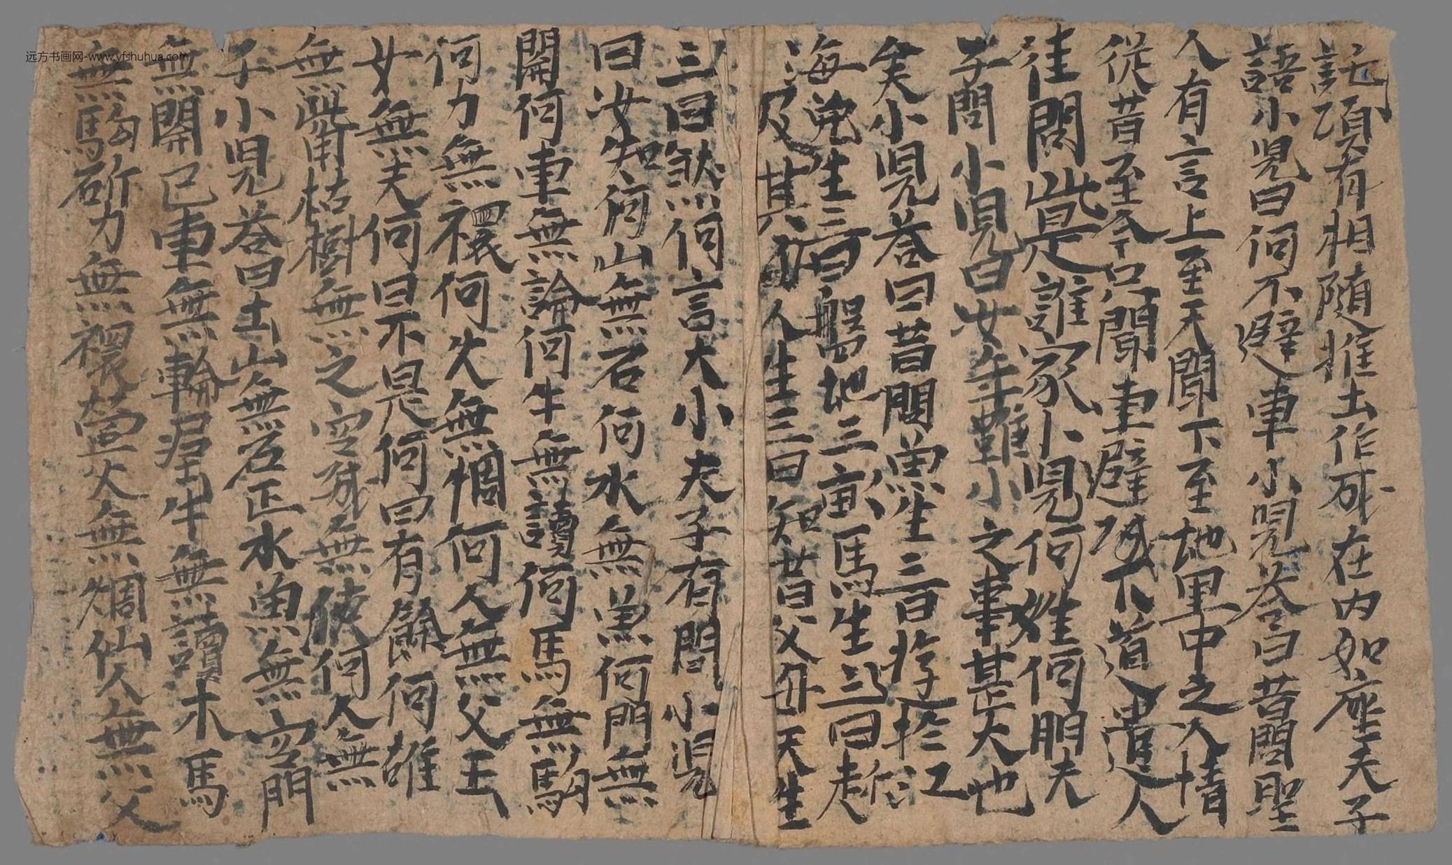 託項有相随推土作城在内如座夫子
語小児曰何不避車小児荅曰昔聞聖
人有言上至天聞下至地里中之人情
從昔至今只聞車避城不道遣人
往問此是誰家小児何姓何
子問小児曰汝年雖小之事甚大也
矣小児荅曰昔聞魚生三日游於江
海兎生三日盤地三亩馬生三日走
及其人生三日知昔父母天生
三曰然何言大小夫子有問小児
曰汝知何山無石何水無魚何門無
開何車無論何牛無讀何馬無駒
何力無襈何火無烟何人無父王
女無夫何曰不足何曰有餘何雄
無此甫枯樹無之空城無使何人無
子小児荅曰土山無石正水魚無空門
無開已車無輪埿牛無讀木馬
無駒斫力無襈萤火無烟仙人無父
远方书画网-www.yfshuhua.com